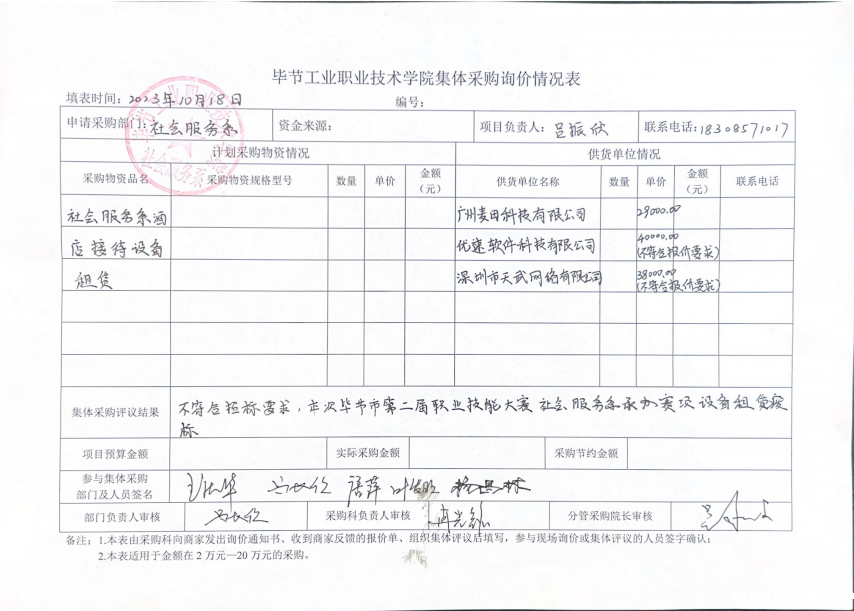 毕节工业职业技术学院集体采购询价情况表
填表时间：2023年10月18日 编号：
申请采购部门：社会服务系 资金来源： 项目负责人：吕振欣 联系电话：18308571017
计划采购物资情况 供货单位情况
采购物资品名 采购物资规格型号 数量 单价 金额（元） 供货单位名称 数量 单价 金额（元） 联系电话
社会服务系酒 广州麦田科技有限公司 29000.00
店接待设备 优速软件科技有限公司 40000.00（不符合报价要求）
租赁 深圳市天武网络有限公司 38000.00（不符合报价要求）
集体采购评议结果 不符合招标要求，本次毕节市第二届职业技能大赛社会服务系承办赛项设备租赁废
标
项目预算金额 实际采购金额 采购节约金额
参与集体采购
部门及人员签名
部门负责人审核 采购科负责人审核 分管采购院长审核
备注：1.本表由采购科向商家发出询价通知书、收到商家反馈的报价单、组织集体评议后填写，参与现场询价或集体评议的人员签字确认；
2.本表适用于金额在 2 万元—20 万元的采购。